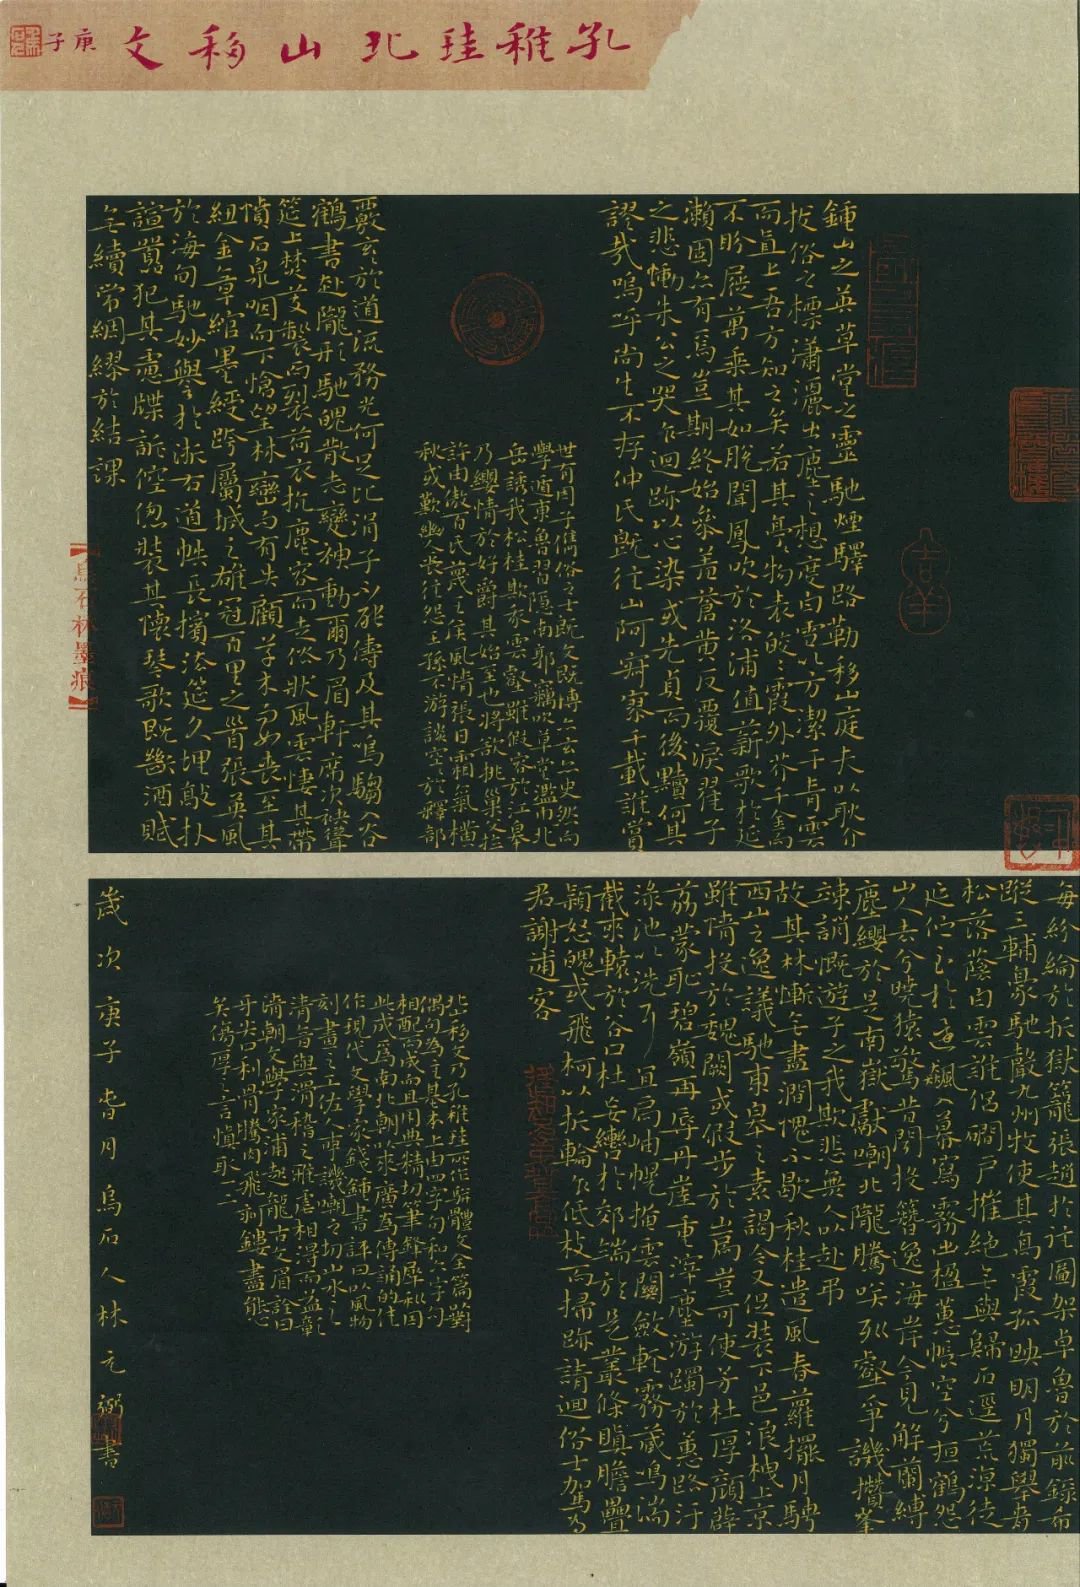 孔稚珪北山移文
庚子
鍾山之英草堂之靈馳煙驛路勒移山庭夫以耿介
拔俗之標瀟灑出塵之想度白雪以方潔干青雲
而直上吾方知之矣若其亭々物表皎々霞外芥千金而
不盼屣萬乘其如脫聞鳳吹於洛浦值薪歌於延
瀨固亦有焉豈期終始參差蒼黃反覆淚翟子
之悲慟朱公之哭乍迴跡以心染或先貞而後黷何其
謬哉嗚呼尚生不存仲氏既往山阿寂寥千載誰賞
世有周子儁俗之士既文既博亦玄亦史然而
學遁東魯習隱南郭竊吹草堂濫巾北
岳誘我松桂欺我雲壑雖假容於江皋
乃纓情於好爵其始至也將欲排巢父拉
許由傲百氏蔑王侯風情張日霜氣橫
秋或歎幽人長往怨王孫不游談空々於釋部
覈玄於道流務光何足比涓子不能儔及其鳴騶入谷
鶴書赴隴形馳魄散志變神動爾乃眉軒席次袂聳
筵上焚芰製而裂荷衣抗塵容而走俗狀風雲悽其帶
憤石泉咽而下愴望林巒而有失顧草木而如喪至其
紐金章綰墨綬跨屬城之雄冠百里之首張英風
於海甸馳妙譽於浙右道帙長擯法筵久埋敲扑
諠囂犯其慮牒訴倥傯裝其懷琴歌既斷酒賦
無續常綢繆於結課
【烏石林墨痕】
吉羊
每紛綸於折獄籠張趙於往圖架卓魯於前錄希
蹤三輔豪馳聲九州牧使其高霞孤映明月獨舉青
松落蔭白雲誰侶磵戶摧絕無與歸石逕荒涼徒
延佇至於還飆入幕寫霧出楹蕙帳空兮夜鶴怨
山人去兮曉猿驚昔聞投簪逸海岸今見解蘭縛
塵纓於是南嶽獻嘲北隴騰笑列壑爭譏攢峯
竦誚慨游子之我欺悲無人以赴弔
故其林慚無盡澗愧不歇秋桂遣風春蘿擺月騁
西山之逸議馳東皋之素謁今又促裝下邑浪栧上京
雖情投於魏闕或假步於山扃豈可使芳杜厚顏薜
荔蒙恥碧嶺再辱丹崖重滓塵游躅於蕙路汙
淥池以洗耳宜扃岫幌掩雲關斂輕霧藏鳴湍
截來轅於谷口杜妄轡於郊端於是叢條瞋膽疊
穎怒魄或飛柯以折輪乍低枝而掃跡請迴俗士駕為
君謝逋客
北山移文乃孔稚珪所作駢體文全篇對
偶句為主基本上由四字句和六字句
相配而成而且用典精切筆鋒犀利因
此成為南北朝以來廣為傳誦的佳
作現代文學家錢鍾書評曰以風物
刻畫之工佐人事譏嘲之切山水之
清音與滑稽之雅虐相得而益彰
清朝文學家浦起龍古文眉詮曰
牙尖口利骨騰肉飛刻鏤盡態
矣傷厚之言慎取一二
歲次庚子杏月烏石人林元弼書